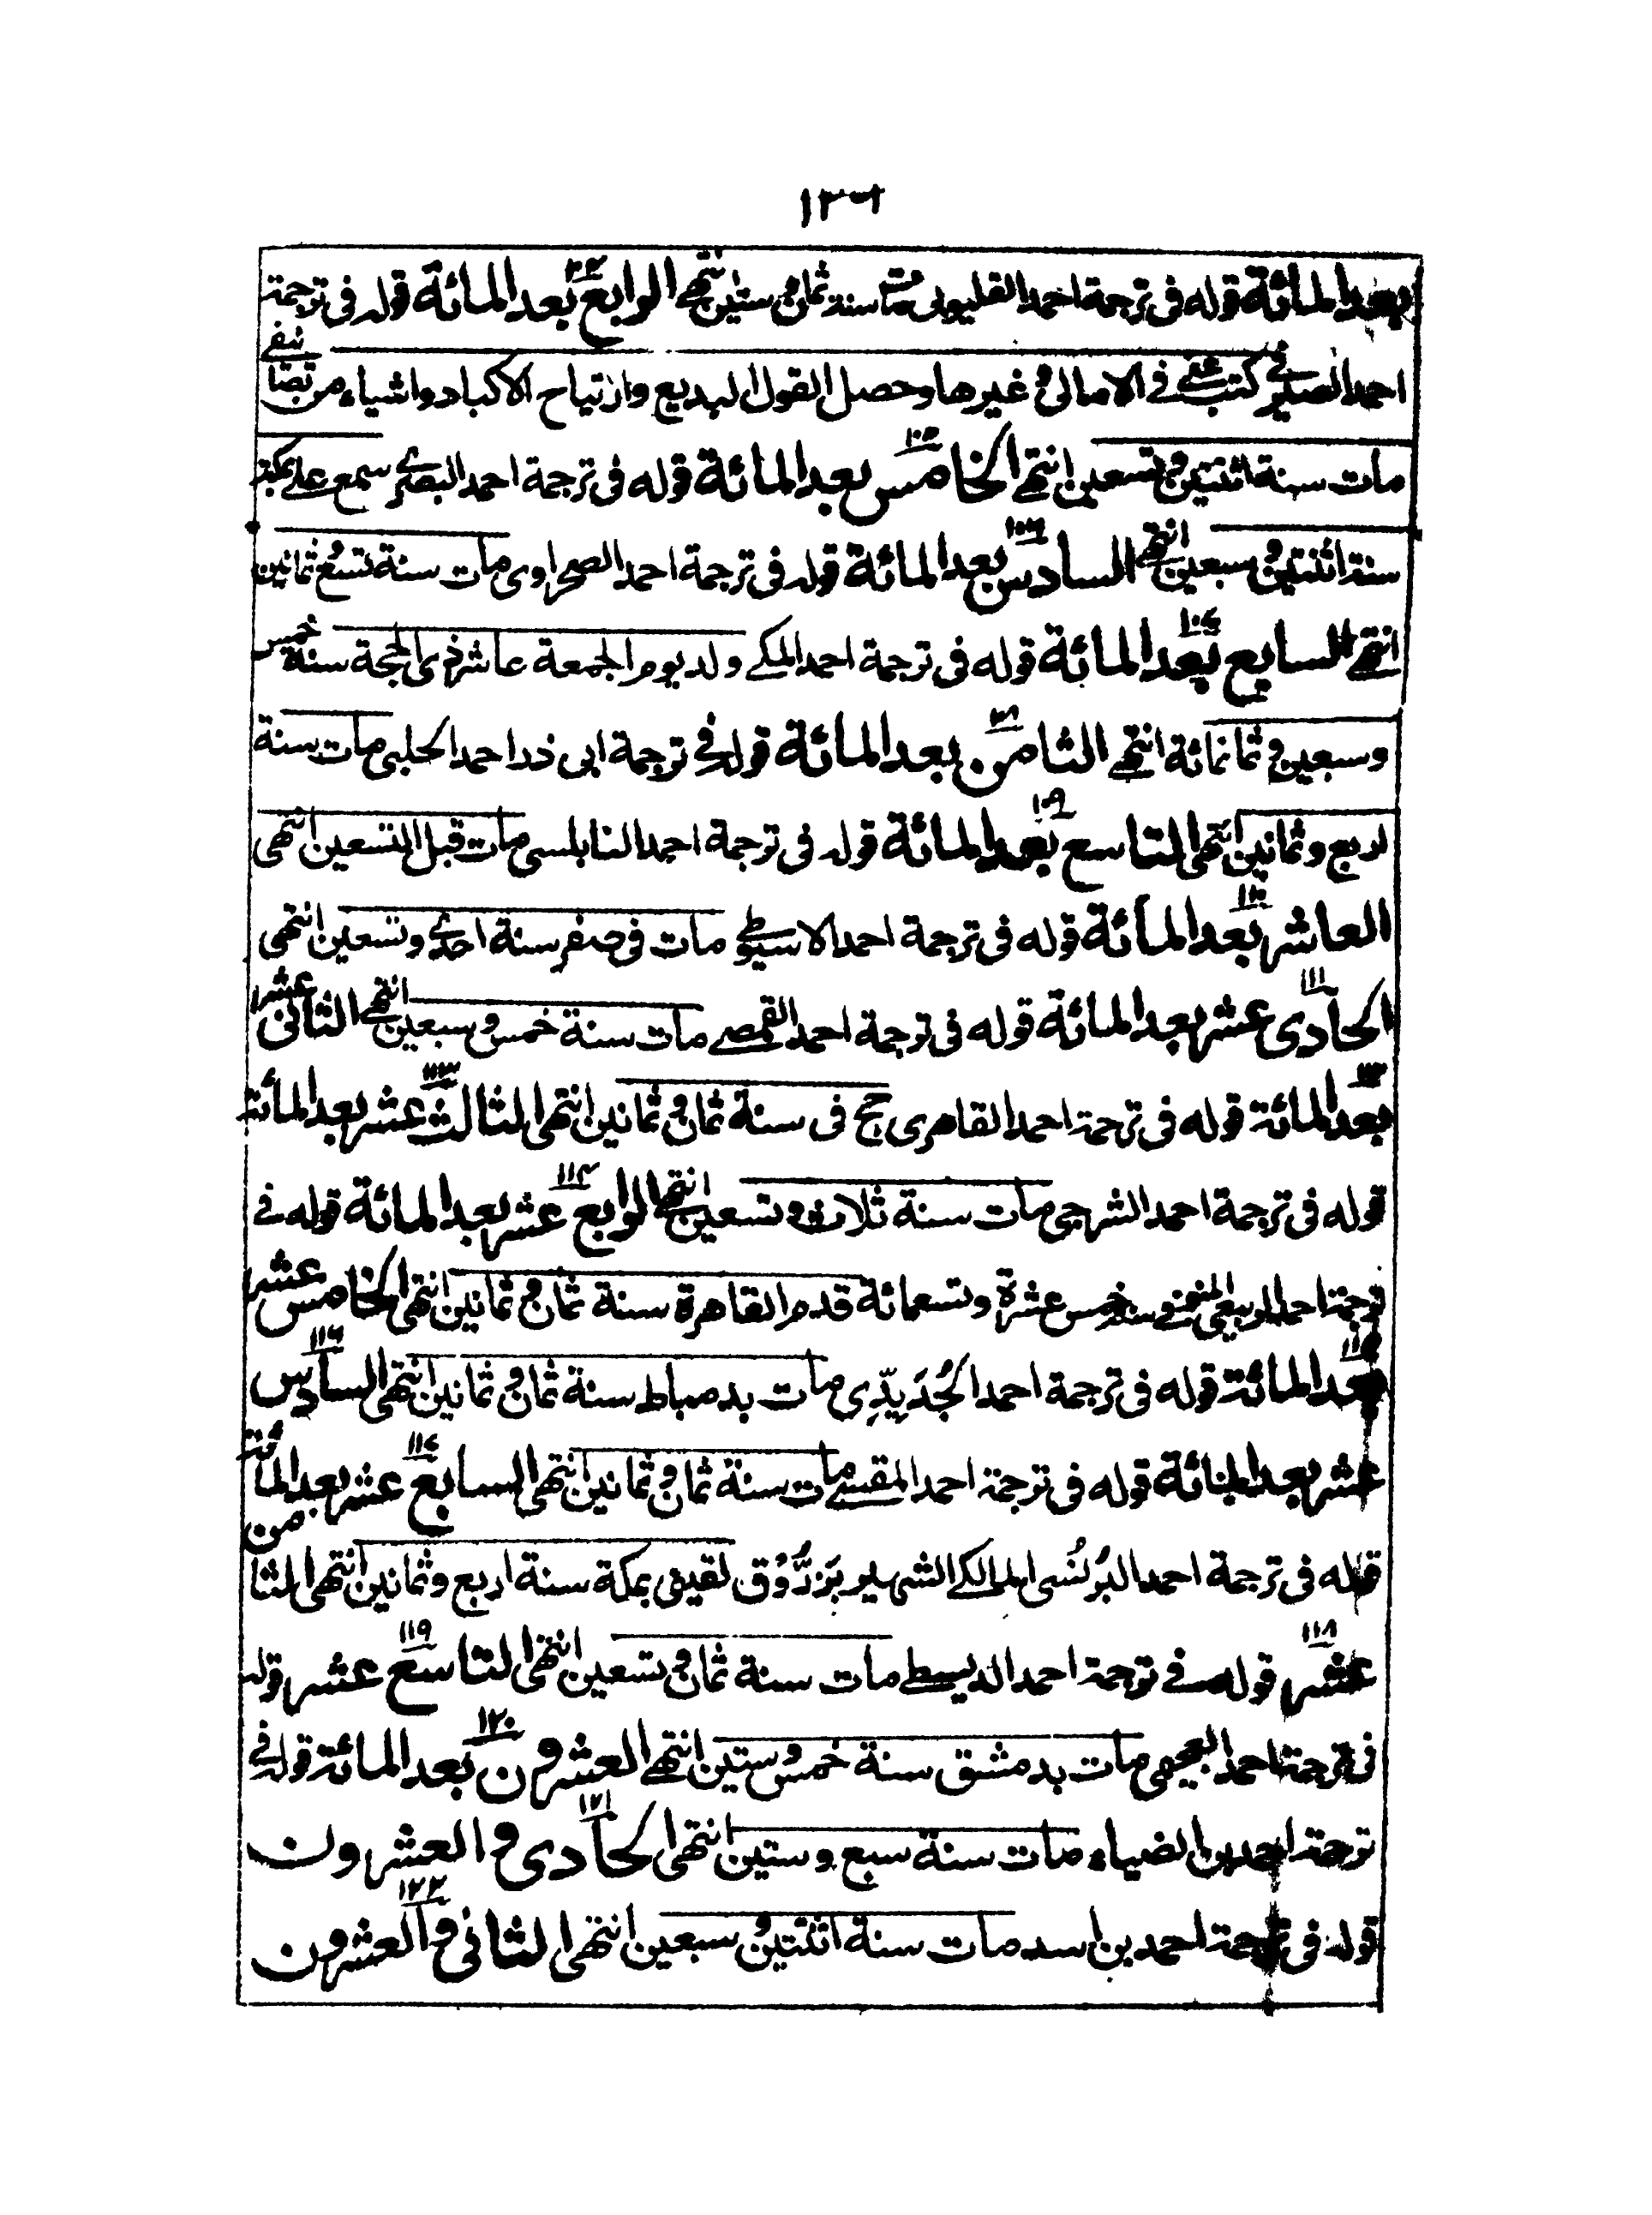 ١٣٦
بعد المائة قوله فى ترجمة احمد القليوبى مات سنة ثمان وستين انتهى الرابع بعد المائة قوله فى ترجمة
احمد الصيرفى كتب عنى فى الامالى وغيرها وحصل القول البديع وارتياح الاكباد واشياء من تصانيفى
مات سنة اثنتين وتسعين انتهى الخامس ١٠٥ بعد المائة قوله فى ترجمة احمد البصرى سمع على بمكة
سنة اثنتين وسبعين انتهى السادس ١٠٦ بعد المائة قوله فى ترجمة احمد الصحراوى مات سنة تسع وثمانين
انتهى السابع ١٠٧ بعد المائة قوله فى ترجمة احمد المكى ولد يوم الجمعة عاشر ذى الحجة سنة خمس
وسبعين وثمانمائة انتهى الثامن ١٠٨ بعد المائة قوله فى ترجمة ابى ذر احمد الحلبى مات سنة
اربع وثمانين انتهى التاسع ١٠٩ بعد المائة قوله فى ترجمة احمد النابلسى مات قبل التسعين انتهى
العاشر ١١٠ بعد المائة قوله فى ترجمة احمد الاسيوطى مات فى صفر سنة احدى وتسعين انتهى
الحادى ١١١ عشر بعد المائة قوله فى ترجمة احمد القمصى مات سنة خمس وسبعين انتهى الثانى عشر
١١٢ بعد المائة قوله فى ترجمة احمد القاهرى حج فى سنة ثمان وثمانين انتهى الثالث ١١٣ عشر بعد المائة
قوله فى ترجمة احمد الشرجى مات سنة ثلاث وتسعين انتهى الرابع ١١٤ عشر بعد المائة قوله فى
ترجمة احمد الربيعى المتوفى سنة خمس عشرة وتسعمائة قدم القاهرة سنة ثمان وثمانين انتهى الخامس عشر
١١٥ بعد المائة قوله فى ترجمة احمد الجُدَيِّدِى مات بدمياط سنة ثمان وثمانين انتهى السادس ١١٦
عشر بعد المائة قوله فى ترجمة احمد المقسى مات سنة ثمان وثمانين انتهى السابع ١١٧ عشر بعد المائة
قوله فى ترجمة احمد البُرنُسى المالكى الشهير بزَرُّوُق لقينى بمكة سنة اربع وثمانين انتهى الثامن
١١٨ عشر قوله فى ترجمة احمد الديسطى مات سنة ثمان وتسعين انتهى التاسع ١١٩ عشر قوله
فى ترجمة احمد مات بدمشق سنة خمس وستين انتهى العشرون ١٢٠ بعد المائة قوله فى
ترجمة احمد بن الضياء مات سنة سبع وستين انتهى الحادى ١٢١ والعشرون
قوله فى ترجمة احمد بن اسد مات سنة اثنتين وسبعين انتهى الثانى ١٢٢ والعشرون